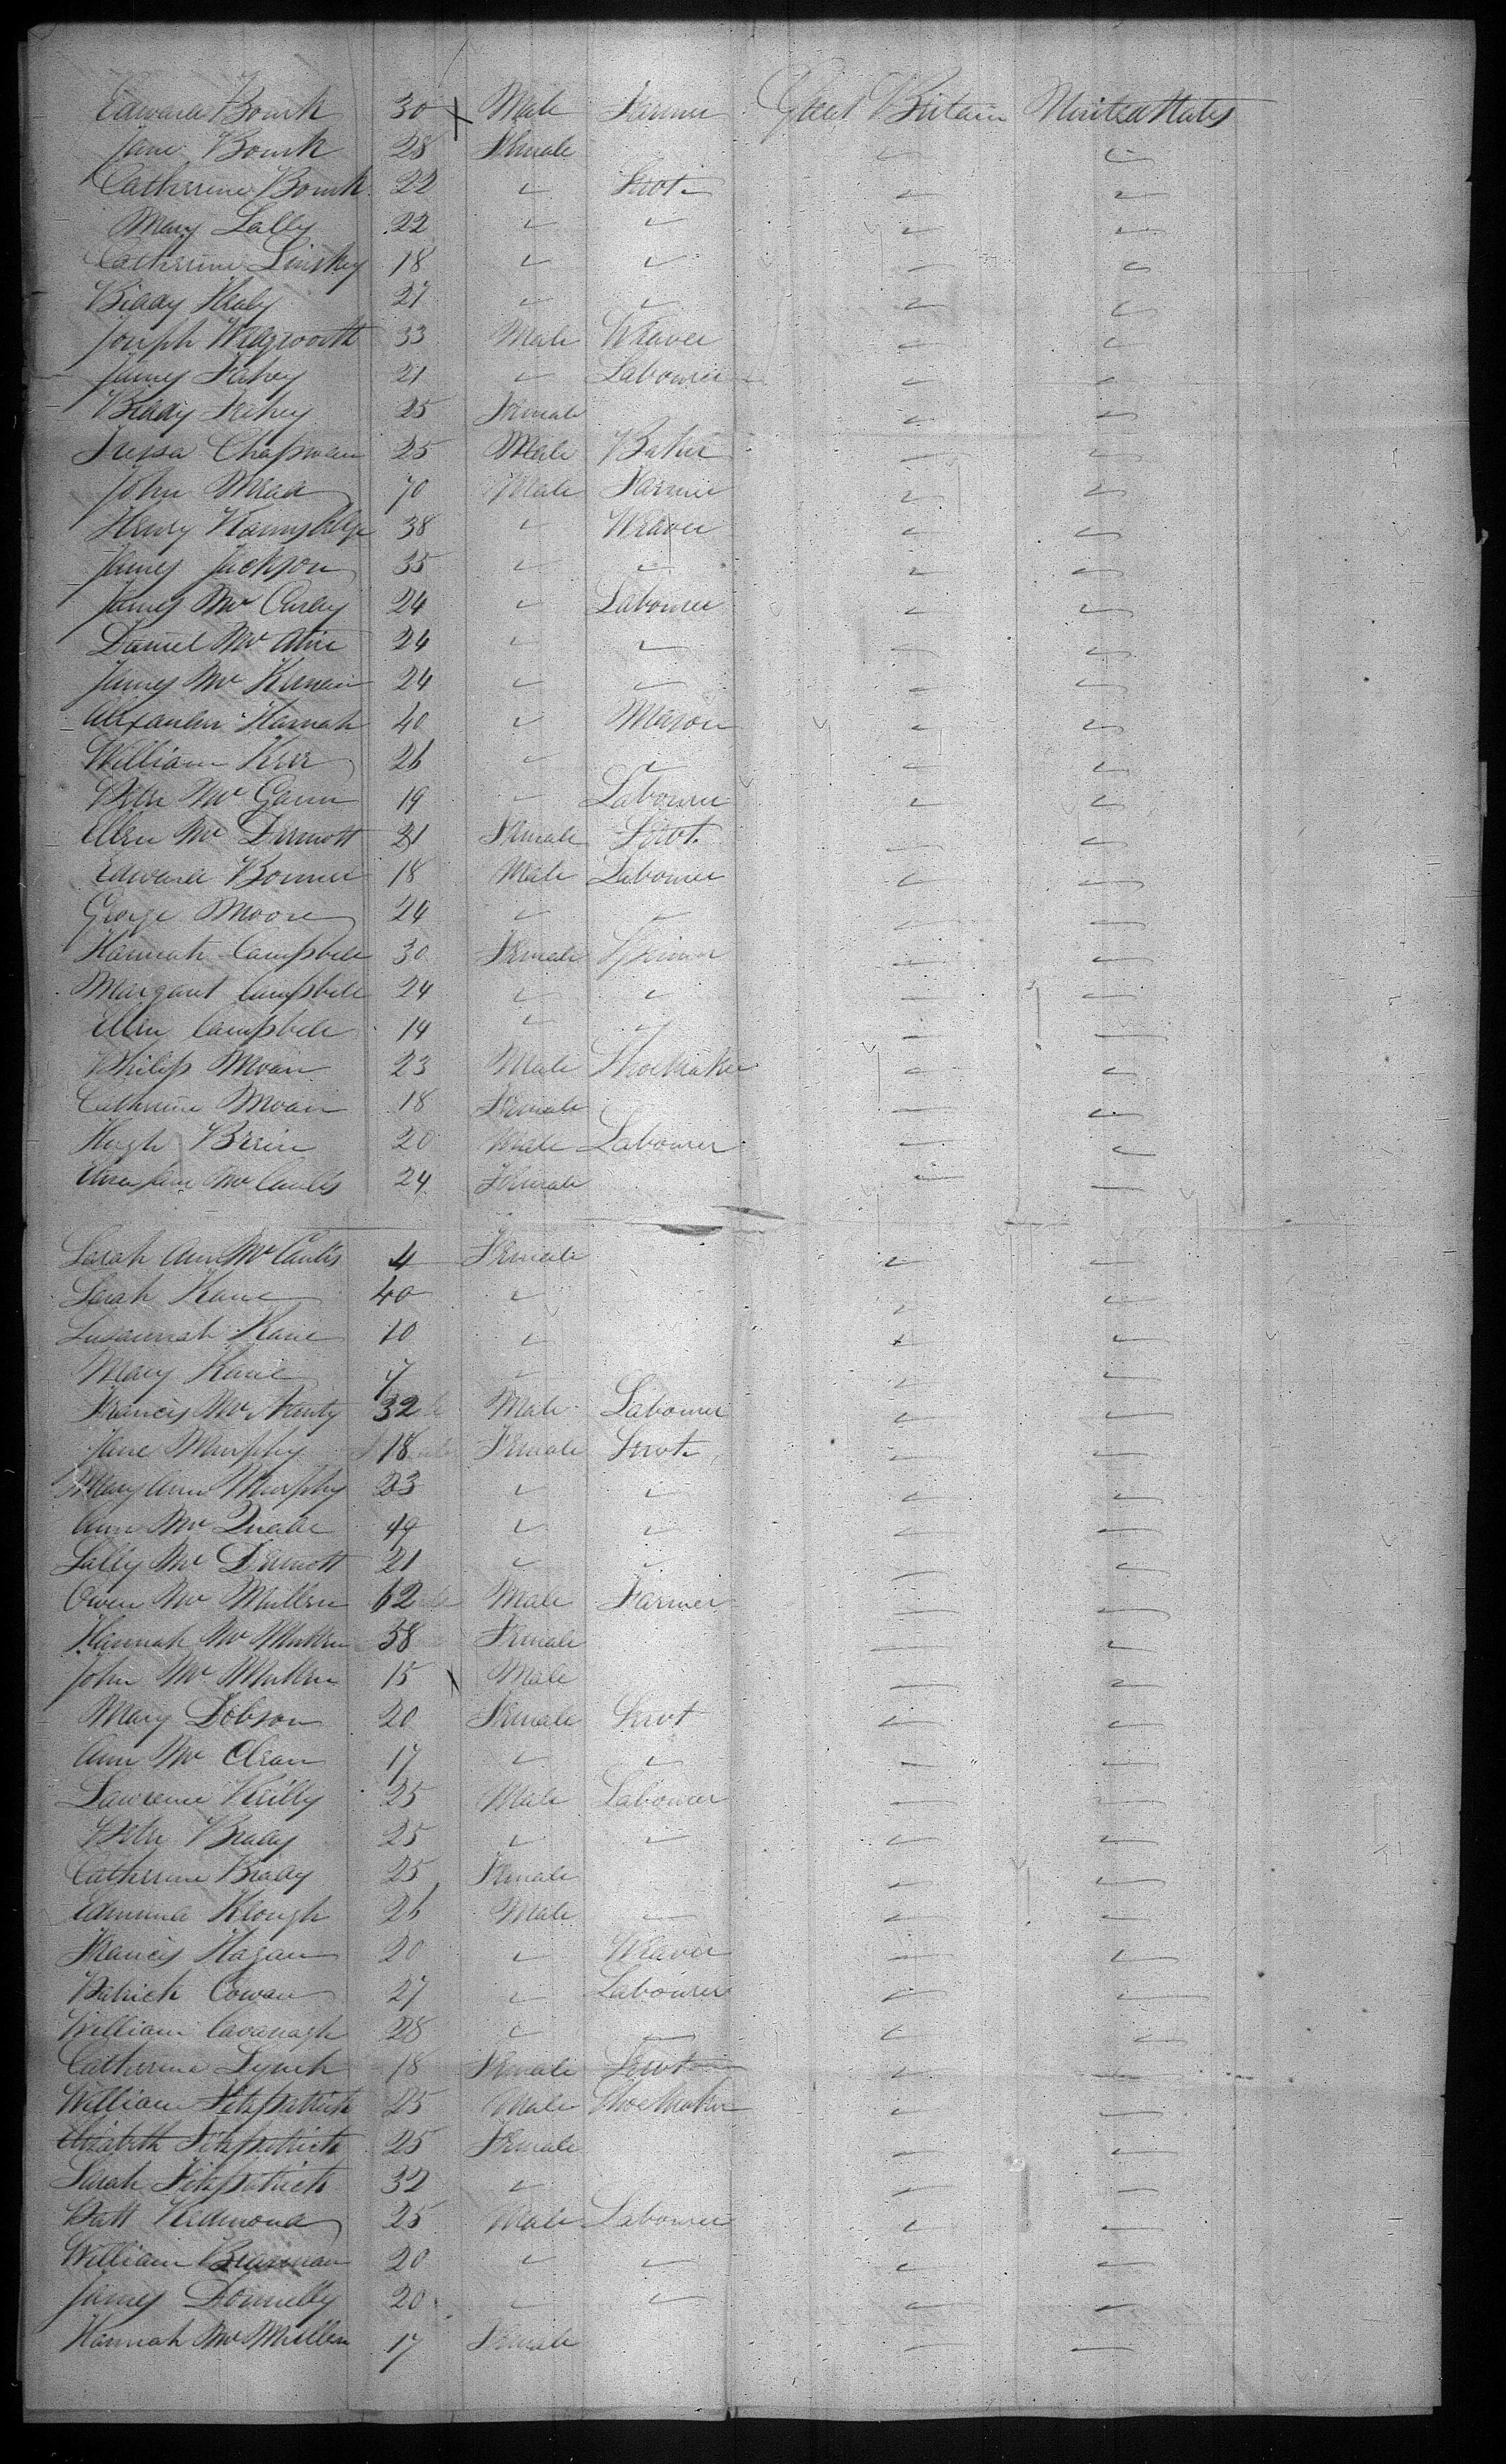 Edward Bourk 30 Male Farmer Great Britain United States
Jane Bourk 28 Female
Catherine Bourk 22 " Servt "
Mary Lally 22 " "
Catherine Linskey 18 " "
Biddy Healy 27 " "
Joseph Wedgworth 33 Male Weaver
James Fahey 21 " Labourer
Biddy Fahey 25 Female
Chapman 25 Male Baker
John Mead 70 Male Farmer
Henry 38 " Weaver
James Jackson 35 " "
James Mc Curley 24 " Labourer
Daniel Mc Atire 24 " "
James Mc Kernan 24 " "
Alexander Hannah 40 " Mason
William Kerr 26 " "
Peter Mc Gann 19 " Labourer
Ellen Mc Dermott 21 Female Servt
Edward Bonner 18 Male Labourer
George Moore 24 " "
Hannah Campbell 30 Female Spinner
Margaret Campbell 24 " "
Ellen Campbell 14 " "
Philip Moan 23 Male Shoemaker
Catherine Moan 18 Female
Hugh 20 Male Labourer
Mc Caulis 24 Female
Sarah Ann Mc Caulis 4 Female
Sarah Kane 40 "
Susannah Kane 10 "
Mary Kane 7 "
Francis Mc 32 Male Labourer
Jane Murphy 18 Female Servt
Mary Ann Murphy 23 " "
Ann Mc Quade 49 " "
Sally Mc Dermott 21 " "
Owen Mc Mullen 62 Male Farmer
Hannah Mc Mullen 58 Female
John Mc Mullen 15 Male
Mary Dobson 20 Female Servt
Ann Mc Clean 17 " "
Lawrence Reilly 25 Male Labourer
Peter Brady 25 " "
Catherine Brady 25 Female
Edmund Keough 26 Male "
Francis Hagan 20 " Weaver
Patrick Cowan 27 " Labourer
William Cavanagh 28 " "
Catherine Lynch 18 Female Servt
William Fitzpatrick 25 Male Shoemaker
Elizabeth Fitzpatrick 25 Female
Sarah Fitzpatrick 32 "
Patt Redmond 25 Male Labourer
William 20 " "
James Donnelly 20 " "
Hannah Mc Mullen 17 Female